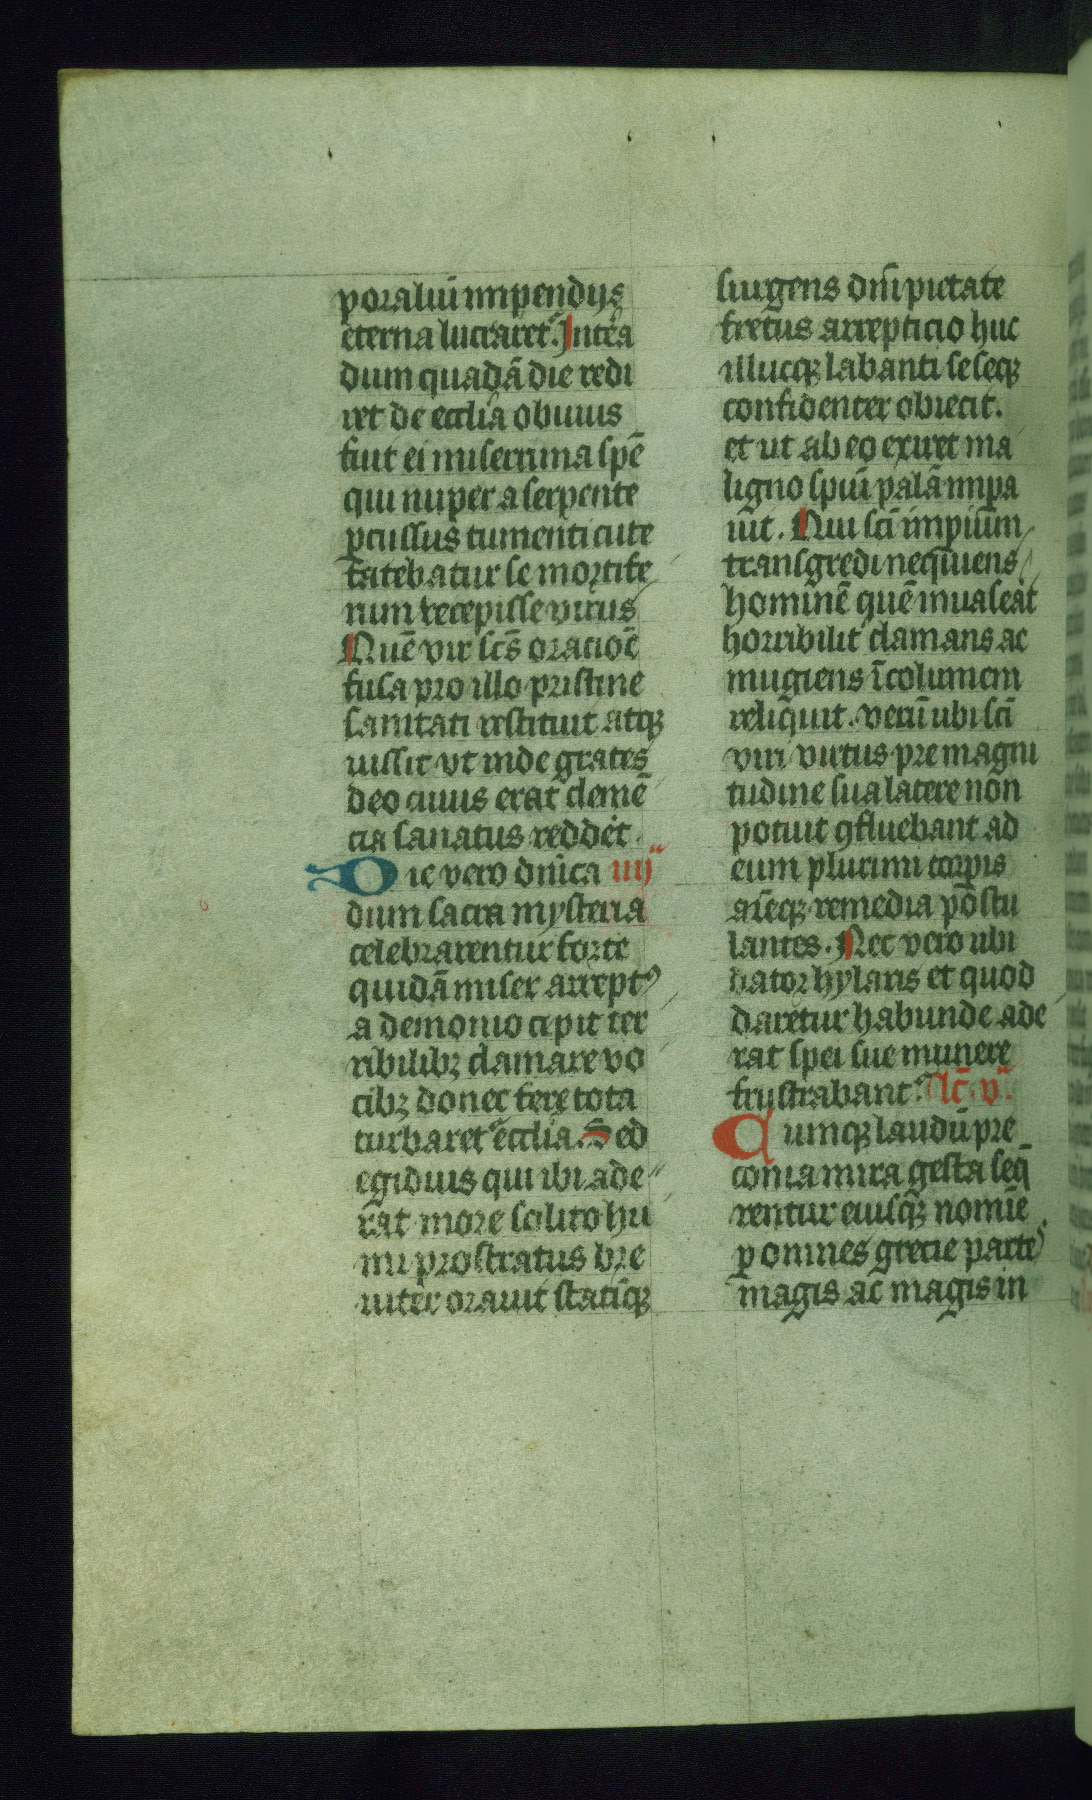 poraliū impendijs
eterna lucraret᷑. Interea
dum quadā die redi
ret de ecclīa obuius
fiut ei miserrima spē
qui nuper a serpente
ꝑcussus tumenti cute
fatebatur se mortife
rum recepisse virus
Quē vir scs̄ oratiōē
fusa pro illo pristine
sanitati restituit atqꝫ
iussit vt inde grates
deo cuius erat clemē
cia sanatus reddet.
Die vero dnīca iiij
dum sacra mysteria
celebrarentur forte
quidā miser arreptꝰ
a demonio cepit ter
ribilibꝫ clamare vo
cibꝫ donec fere tota
turbaret᷑ ecclīa. Sed
egidius qui ibi ade
rat more solito hu
mi prostratus bre
uiter orauit statīqꝫ
surgens dnī pietate
fretus arrepticio huc
illucqꝫ labanti seseqꝫ
confidenter obiecit.
et ut ab eo exiret ma
ligno spūi palā impa
uit. Qui scī impiūm
transgredi nequiens
hominē quē inuaseat
horribilit᷑ clamans ac
mugiens īcolumem
reliquit. verū ubi scī
viri virtus pre magni
tudine sua latere non
potuit ꝯfluebant ad
eum plurimi corꝑis
aīeqꝫ remedia postu
lantes. Nec vero ubi
dator hylaris et quod
daretur habunde ade
rat spei sue munere
frustrabant᷑. lc̄. v.
Cumqꝫ laudū pre
conia mira gesta seq̄
rentur eiusqꝫ nomīe
ꝑ omnes grecie parte
magis ac magis in